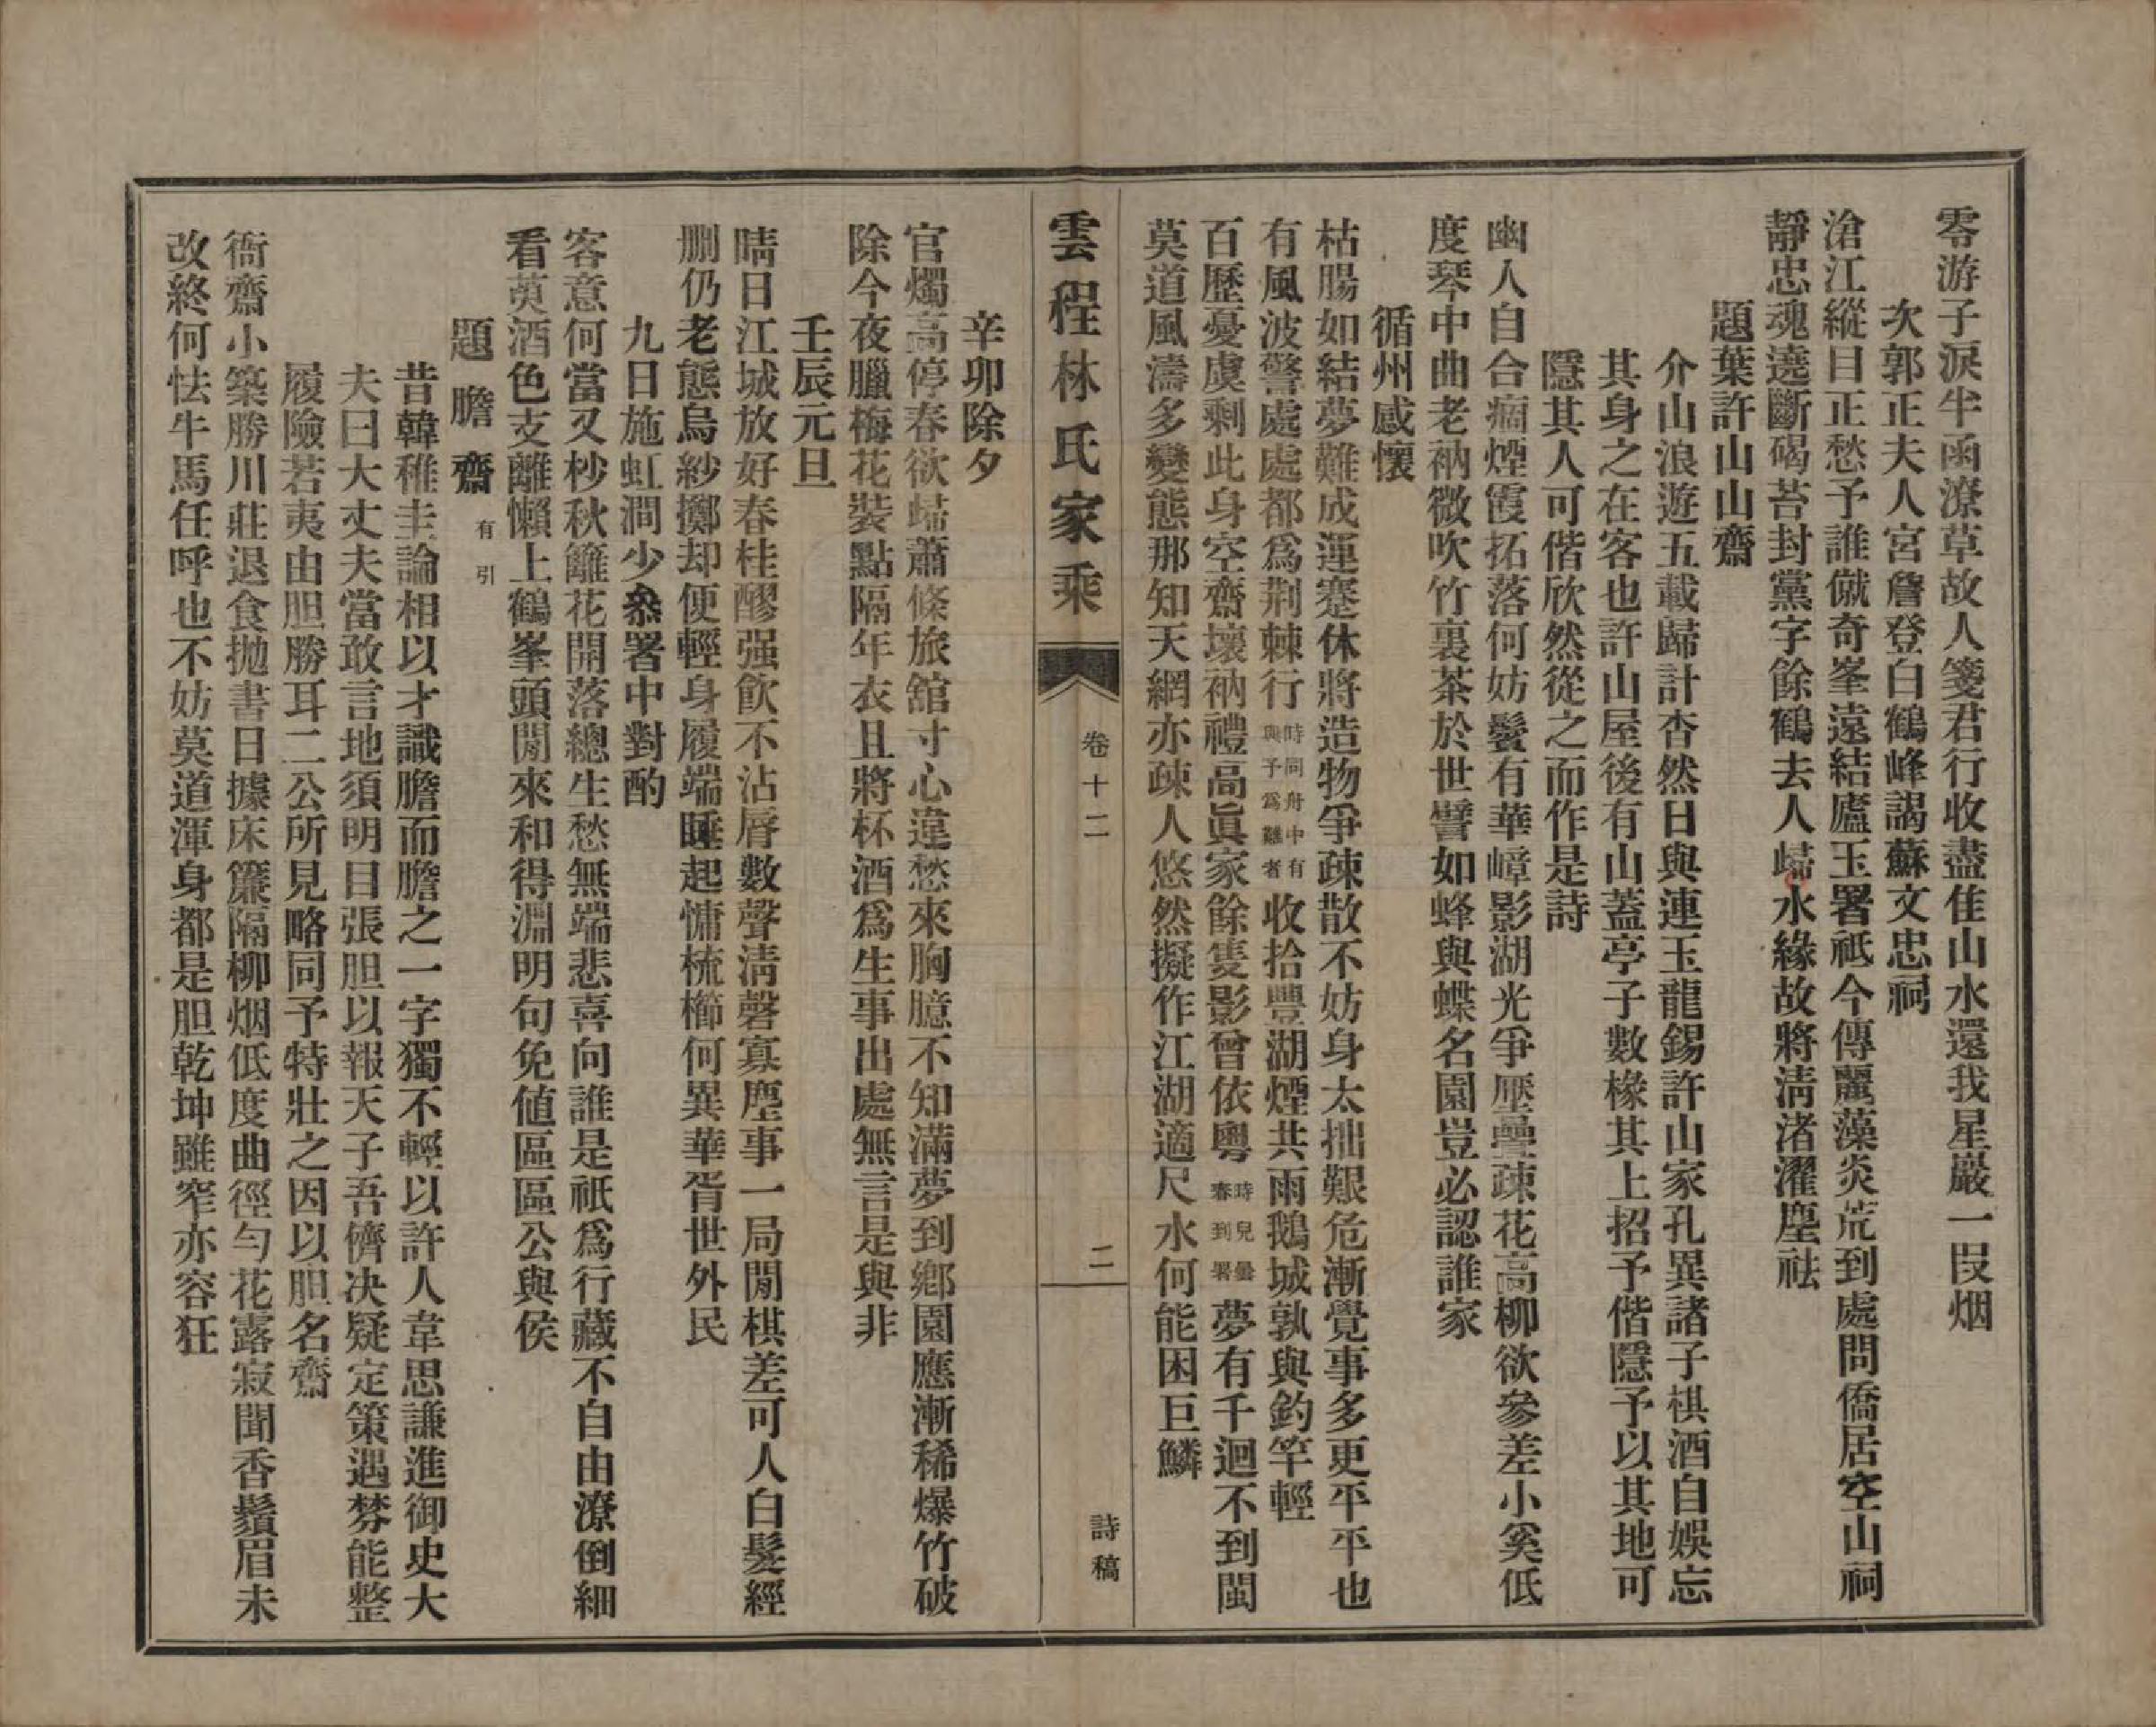 零游子淚半函潦草故人箋君行收盡佳山水還我星巖一段烟
次郭正夫人宮詹登白鶴峰謁蘇文忠祠
滄江縱目正愁予誰僦奇峯遠結廬玉署祗今傳麗藻炎荒到處問僑居空山祠
靜忠魂遶斷碣苔封黨字餘鶴去人歸水緣故將清渚濯塵祛
題葉許山山齋
介山浪遊五載歸計杳然日與連玉龍錫許山家孔異諸子棋酒自娛忘
其身之在客也許山屋後有山蓋亭子數椽其上招予偕隱予以其地可
隱其人可偕欣然從之而作是詩
幽人自合痼煙霞拓落何妨鬢有華嶂影湖光爭壓疊疎花高柳欲參差小奚低
度琴中曲老衲微吹竹裏茶於世譬如蜂與蝶名園豈必認誰家
循州感懷
枯腸如結夢難成運蹇休將造物爭疎散不妨身太拙艱危漸覺事多更平平也
有風波警處處都爲荆棘行時同舟中有與予爲難者收拾豐湖煙共雨鵝城孰與釣竿輕
百歷憂虞剩此身空齋壞衲禮高眞家餘隻影曾依粵時兒曇春到署夢有千迴不到閩
莫道風濤多變態那知天網亦疎人悠然擬作江湖適尺水何能困巨鱗
雲程林氏家乘
卷十二
二
詩稿
辛卯除夕
官燭高停春欲歸蕭條旅舘寸心違愁來胸臆不知滿夢到鄉園應漸稀爆竹破
除今夜臘梅花裝點隔年衣且將杯酒爲生事出處無言是與非
壬辰元旦
晴日江城放好春桂醪强飮不沾唇數聲清磬寡塵事一局閒棋差可人白髮經
删仍老態烏紗擲却便輕身履端睡起慵梳櫛何異華胥世外民
九日施虹澗少叅署中對酌
客意何當又杪秋籬花開落總生愁無端悲喜向誰是祇爲行藏不自由潦倒細
看萸酒色支離懶上鶴峯頭閒來和得淵明句免値區區公與侯
題膽齋有引
昔韓稚圭論相以才識膽而膽之一字獨不輕以許人韋思謙進御史大
夫曰大丈夫當敢言地須明目張胆以報天子吾儕决疑定策遇棼能整
履險若夷由胆勝耳二公所見略同予特壯之因以胆名齋
衙齋小築勝川莊退食拋書日據床簾隔柳烟低度曲徑勻花露寂聞香鬚眉未
改終何怯牛馬任呼也不妨莫道渾身都是胆乾坤雖窄亦容狂